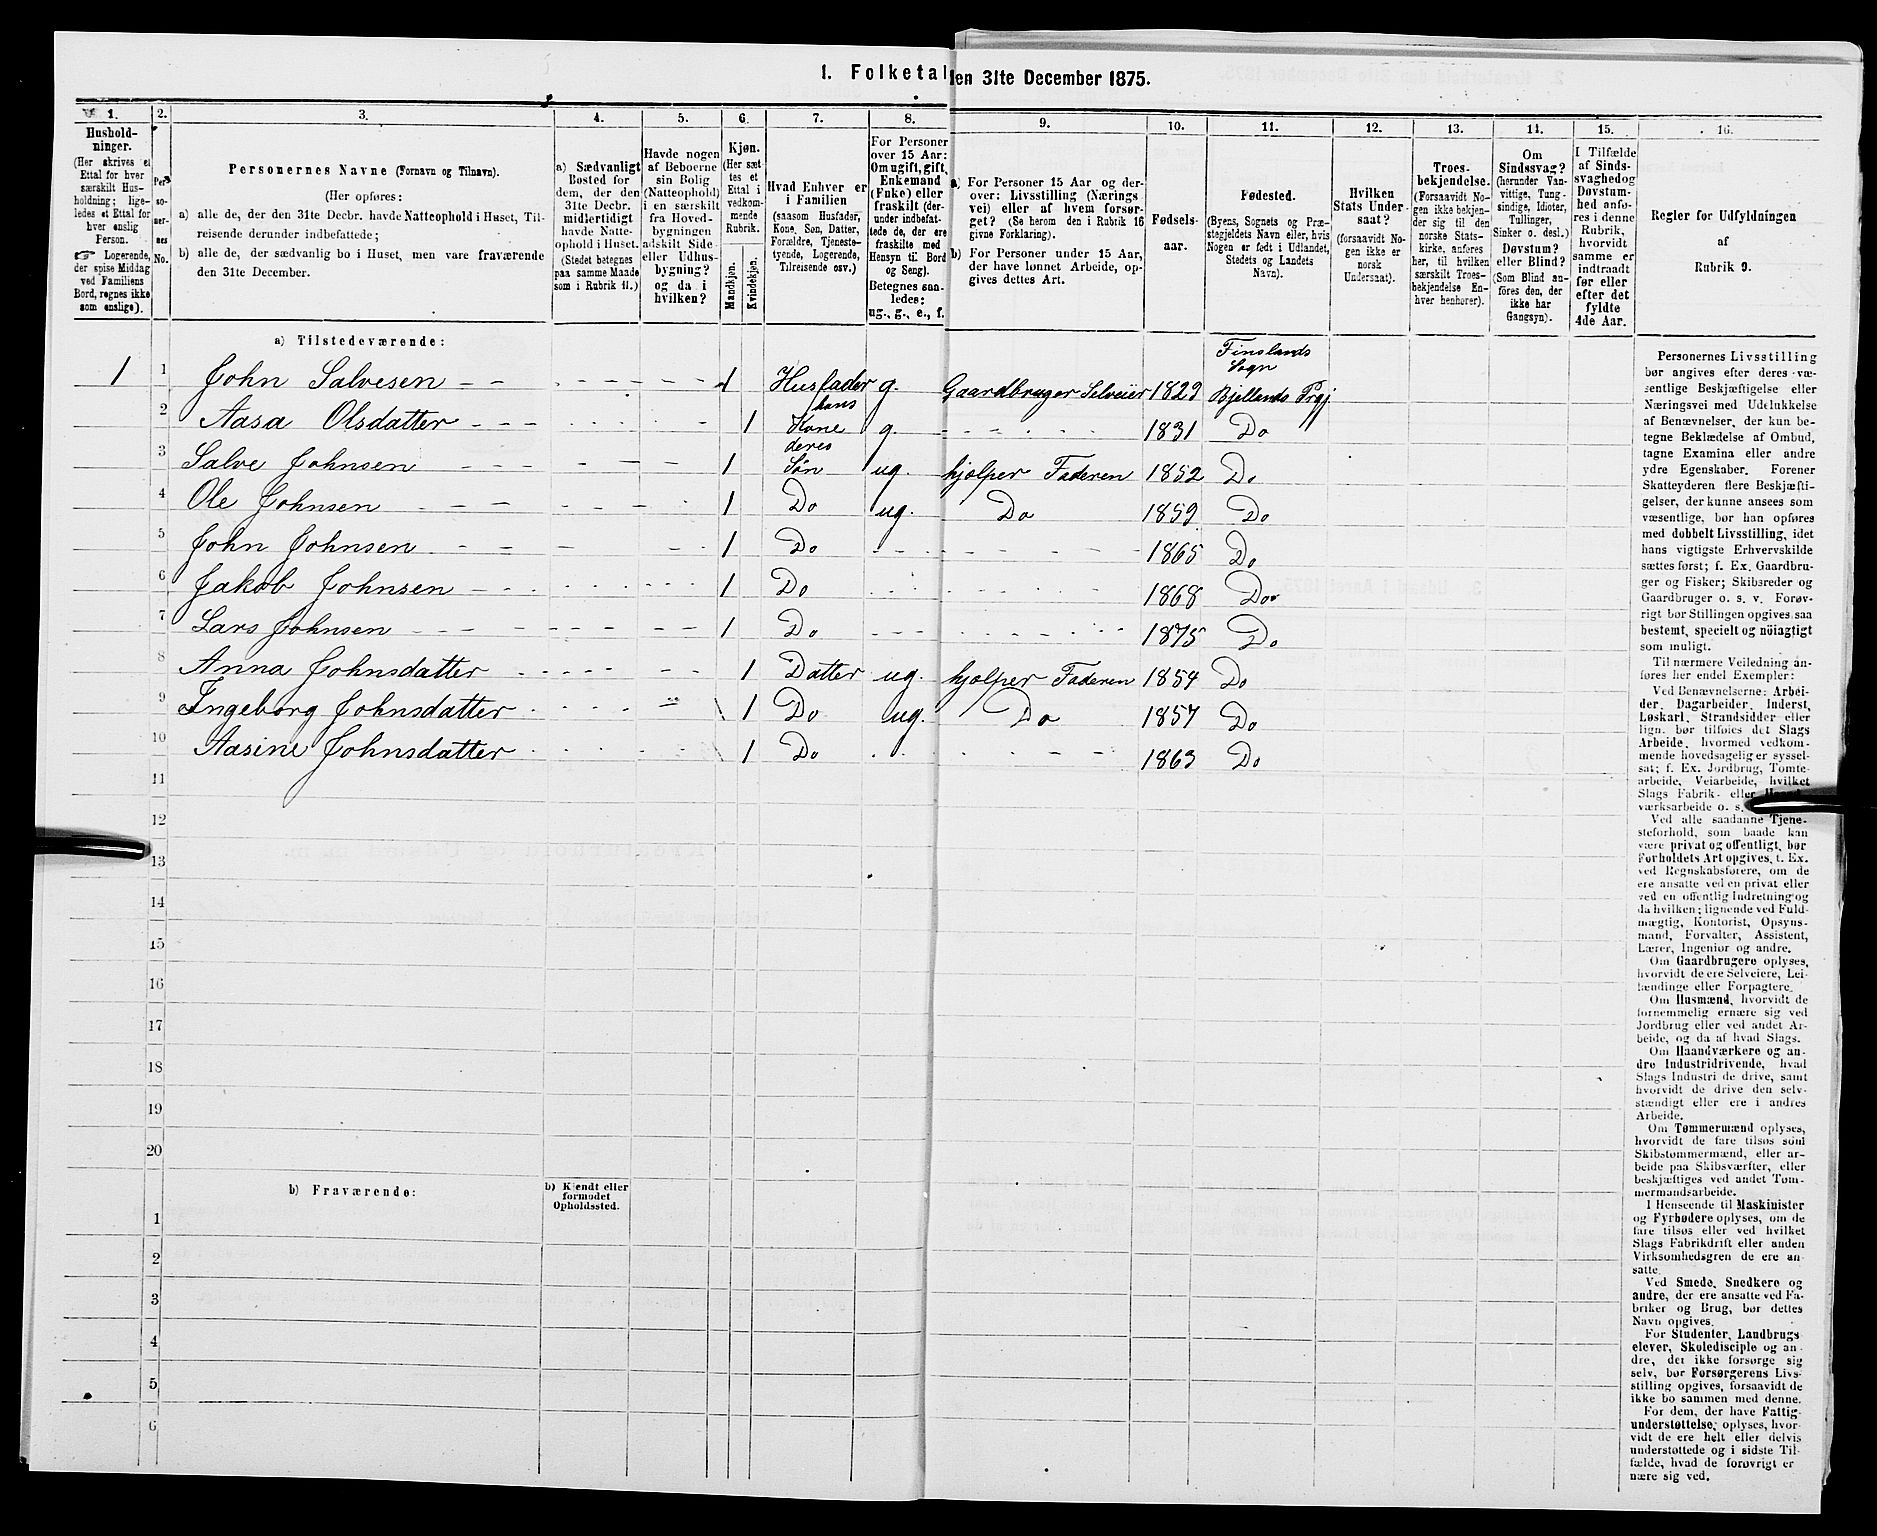 1. Folketal
den 31te December 1875.
1.
2.
3.
4.
5.
6.
7.
8.
9.
10.
11.
12.
13.
14.
15.
16.
Hushold-
ninger.
(Her skrives et
Ettal for hver
særskilt Hus-
holdning; lige-
ledes et Ettal for
hver enslig
Person.
☞ Logerende,
der spise Middag
ved Familiens
Bord, regnes ikke
som enslige).
Per-
so-
ner-
nes
No.
Personernes Navne (Fornavn og Tilnavn).
(Her opføres:
a) alle de, der den 31te Decbr. havde Natteophold i Huset, Til-
reisende derunder indbefattede;
b) alle de, der sædvanlig bo i Huset, men vare fraværende
den 31te December.
a) Sædvanligt
Bosted for
dem, der den
31te Decbr.
midlertidigt
havde Natte-
ophold i Huset.
(Stedet betegnes
paa samme Maade
som i Rubrik 11.)
Havde nogen
af Beboerne
sin Bolig
(Natteophold)
i en særskilt
fra Hoved-
bygningen
adskilt Side-
eller Udhus-
bygning?
og da i
hvilken?
Kjøn.
(Her sæt-
tes et
Ettal i
vedkom-
mende
Rubrik.
Mandkjøn.
Kvindekjøn.
Hvad Enhver er
i Familien
(saasom Husfader,
Kone, Søn, Datter,
Forældre, Tjeneste-
tyende, Logerende,
Tilreisende osv.)
For Personer
over 15 Aar:
Om ugift, gift,
Enkemand
(Enke) eller
fraskilt (der-
under indbefat-
tede de, der ere
fraskilte med
Hensyn til Bord
og Seng).
Betegnes saa-
ledes:
ug., g., e., f.
a) For Personer 15 Aar og der-
over: Livsstilling (Nærings-
vei) eller af hvem forsør-
get? (Se herom den i Rubrik 16
givne Forklaring).
b) For Personer under 15 Aar,
der have lønnet Arbeide, op-
gives dettes Art.
Fødsels-
aar.
Fødested.
(Byens, Sognets og Præ-
stegjeldets Navn eller, hvis
Nogen er født i Udlandet,
Stedets og Landets
Navn).
Hvilken
Stats Under-
saat?
(forsaavidt No-
gen ikke er
norsk
Undersaat).
Troes-
bekjendelse.
(Forsaavidt No-
gen ikke bekjen-
der sig til den
norske Stats-
kirke, anføres
her, til hvilken
særskilt Troes-
bekjendelse En-
hver henhører).
Om
Sindssvag?
(herunder Van-
vittige, Tung-
sindige, Idioter,
Tullinger,
Sinker o. desl.)
Døvstum?
eller Blind?
(Som Blind an-
føres den, der
ikke har
Gangsyn).
I Tilfælde
af Sinds-
svaghed og
Døvstum-
hed anfø-
res i denne
Rubrik,
hvorvidt
samme er
indtraadt
før eller
efter det
fyldte
4de Aar.
Regler for Udfyldningen
af
Rubrik 9.
a) Tilstedeværende:
Finslands
Sogn
1 1 John Salvesen 1 Husfader g. Gaardbruger Selveier 1829 Bjellands Prgj
hans
2 Aasa Olsdatter 1 Kone g. 1831 Do
deres
3 Salve Johnsen 1 Søn ug. hjelper Faderen 1852 Do
4 Ole Johnsen 1 Do ug. Do 1859 Do
5 John Johnsen 1 Do 1865 Do
6 Jakob Johnsen 1 Do 1868 Do
7 Lars Johnsen 1 Do 1875 Do
8 Anna Johnsdatter 1 Datter ug. hjelper Faderen 1854 Do
9 Ingeborg Johnsdatter 1 Do ug. Do 1857 Do
10 Aasine Johnsdatter 1 Do 1863 Do
11
12
13
14
15
16
17
18
19
20
b) Fraværende:
b) Kjendt eller
formodet
Opholdssted.
1
2
3
4
5
6
Personernes Livsstilling
bør angives efter deres væ-
sentlige Beskjæftigelse eller
Næringsvei med Udelukkelse
af Benævnelser, der kun be-
tegne Beklædelse af Ombud,
tagne Examina eller andre
ydre Egenskaber. Forener
Skatteyderen flere Beskjæfti-
gelser, der kunne ansees som
væsentlige, bør han opføres
med dobbelt Livsstilling, idet
hans vigtigste Erhvervskilde
sættes først; f. Ex. Gaardbru-
ger og Fisker; Skibsreder og
Gaardbruger o. s. v. Forøv-
rigt bør Stillingen opgives saa
bestemt, specielt og nöiagtigt
som muligt.
Til nærmere Veiledning an-
føres her endel Exempler:
Ved Benævnelserne: Arbei-
der, Dagarbeider, Inderst,
Løskarl, Strandsidder eller
lign. bør tilføies det Slags
Arbeide, hvormed vedkom-
mende hovedsagelig er syssel-
sat; f. Ex. Jordbrug, Tomte-
arbeide, Veiarbeide, hvilket
Slags Fabrik- eller Haand-
værksarbeide o. s.
Ved alle saadanne Tjene-
steforhold, som baade kan
være privat og offentligt, bør
Forholdets Art opgives, t. Ex.
ved Regnskabsførere, om de
ere ansatte ved en privat eller
ved en offentlig Indretning og
da hvilken; lignende ved Fuld-
mægtig, Kontorist, Opsyns-
mand, Forvalter, Assistent,
Lærer, Ingeniør og andre.
Om Gaardbrugere oplyses,
hvorvidt de ere Selveiere, Lei-
lændinge eller Forpagtere.
Om Husmænd, hvorvidt de
fornemmelig ernære sig ved
Jordbrug eller ved andet Ar-
beide, og da af hvad Slags.
Om Haandværkere og an-
dre Industridrivende, hvad
Slags Industri de drive, samt
hvorvidt de drive den selv-
stændigt eller ere i andres
Arbeide.
Om Tømmermænd oplyses,
hvorvidt de fare tilsøs som
Skibstømmermænd, eller ar-
beide paa Skibsværfter, eller
beskjæftiges ved andet Tøm-
mermandsarbeide.
I Henseende til Maskinister
og Fyrbødere oplyses, om de
fare tilsøs eller ved hvilket
Slags Fabrikdrift eller anden
Virksomhedsgren de ere an-
satte.
Ved Smede, Snedkere og
andre, der ere ansatte ved Fa-
briker og Brug, bør dettes
Navn opgives.
For Studenter, Landbrugs-
elever, Skoledisciple og an-
dre, der ikke forsørge sig
selv, bør Forsørgerens Livs-
stilling opgives, forsaavidt de
ikke bo sammen med denne.
For dem, der have Fattig-
understøttelse, oplyses, hvor-
vidt de ere helt eller delvis
understøttede og i sidste Til-
fælde, hvad de forøvrigt er-
nære sig ved.